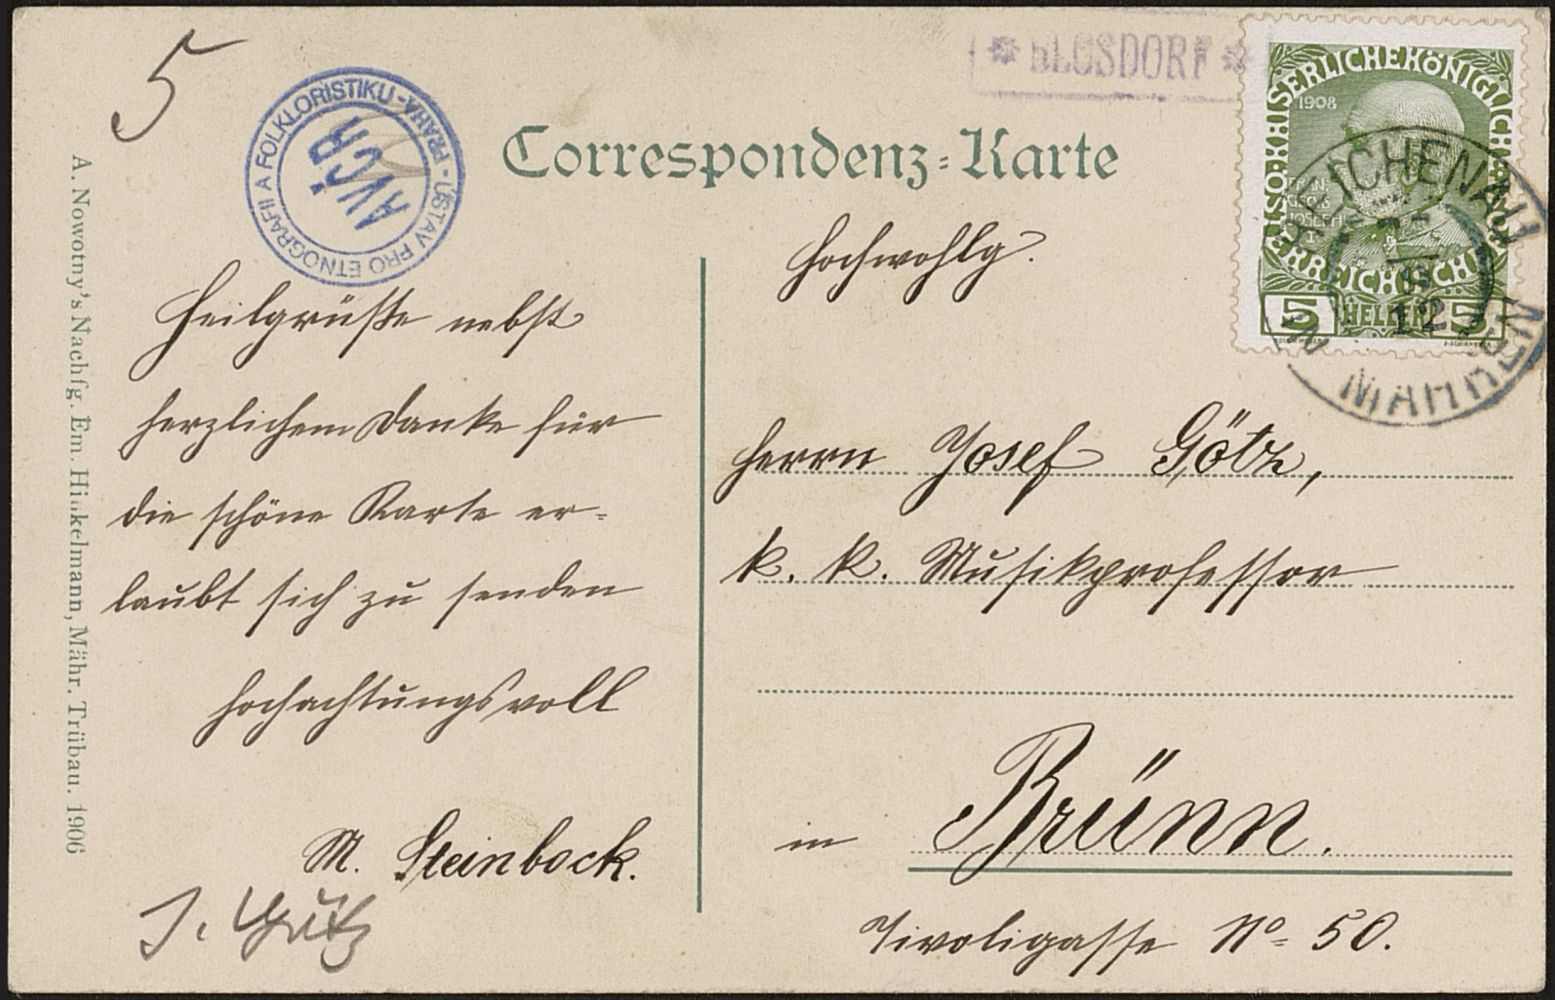 5
ÚSTAV PRO ETNOGRAFII A FOLKLORISTIKU - PRAHA -
AVČR
* BLOSDORF *
Correspondenz-Karte
KAISERLICHE KÖNIGLICHE
ÖSTERREICHISCHE
1908
FRANZ
JOSEPH
I
5 HELLER 5
REICHENAU
IN MÄHREN
12
Hochwohlg.
Heilgrüße nebst
herzlichem Danke für
die schöne Karte er-
laubt sich zu senden
hochachtungsvoll
M. Steinbock.
J. Götz
Herrn Josef Götz,
k. k. Musikprofessor
in Brünn.
Tivoligasse No 50.
A. Nowotny's Nachfg. Em. Hinkelmann, Mähr. Trübau. 1906